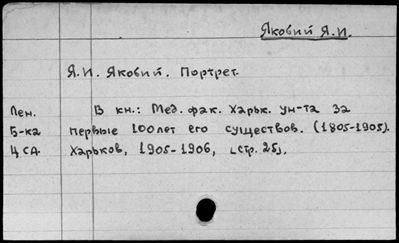 Яковий Я.И.
Я.И. Яковий. Портрет.
Лен. В кн.: Мед. фак. Харьк. ун-та за
Б-ка первые 100 лет его существов. (1805-1905).
ЦСД. Харьков, 1905-1906, [стр. 25].